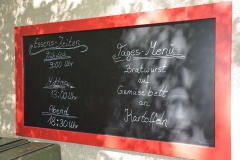 Essens-Zeiten
Frühstück
9:00 Uhr
Mittag
13:00 Uhr
Abend
18:30 Uhr
Tages-Menü
Bratwurst
auf
Gemüsebett
an
Kartoffeln